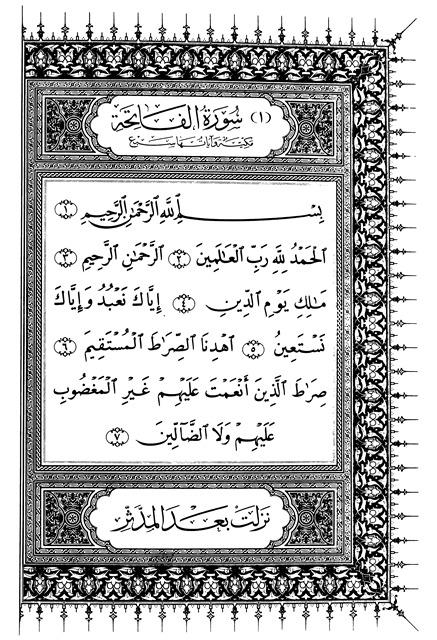 (١) سُورَةُ الفَاتِحَةِ
مَكِّيَّة وَآيَاتُهَا سَبْع
بِسْمِ اللَّهِ الرَّحْمَٰنِ الرَّحِيمِ ١
الْحَمْدُ لِلَّهِ رَبِّ الْعَالَمِينَ ٢ الرَّحْمَٰنِ الرَّحِيمِ ٣
مَالِكِ يَوْمِ الدِّينِ ٤ إِيَّاكَ نَعْبُدُ وَإِيَّاكَ
نَسْتَعِينُ ٥ اهْدِنَا الصِّرَاطَ الْمُسْتَقِيمَ ٦
صِرَاطَ الَّذِينَ أَنْعَمْتَ عَلَيْهِمْ غَيْرِ الْمَغْضُوبِ
عَلَيْهِمْ وَلَا الضَّالِّينَ ٧
نَزَلَتْ بَعْدَ المُدَّثِّر